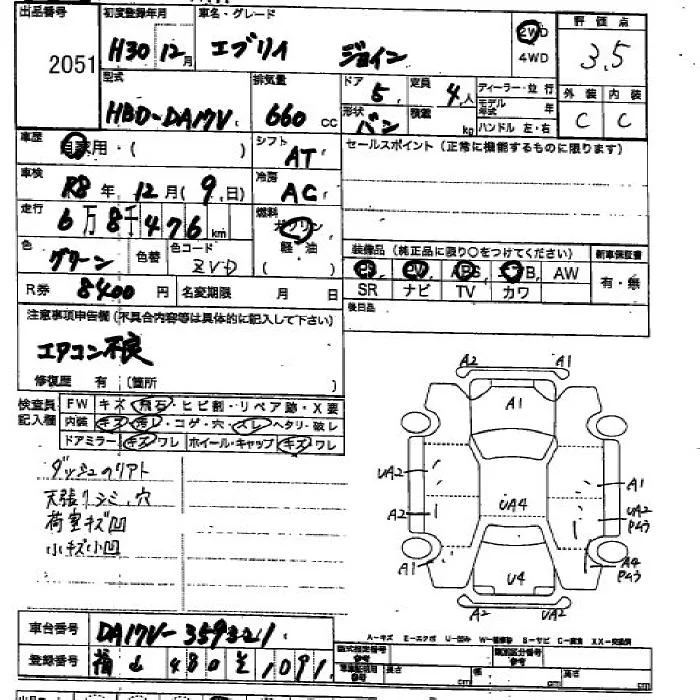 出品番号 2051
初度登録年月 H30年12月
車名・グレード エブリイ ジョイン
2WD 4WD
評価点 3.5
外装 内装
C C
型式 HBD-DA17V
排気量 660 cc
ドア 5
定員 4人
形状 バン
積載 kg
ディーラー・並行
モデル年式 年
ハンドル 左・右
車歴 自家用・( )
シフト AT
セールスポイント(正常に機能するものに限ります)
車検 R8年12月(9日)
冷房 AC
走行 6万8千476km
燃料 ガソリン 軽・油 ( )
色 グリーン 色替 色コード ZVD
装備品(純正品に限り○をつけてください) 新車保証書
AW 有・無
SR ナビ TV カワ
R券 8400円 名変期限 月 日
後日品
注意事項申告欄(不具合内容等は具体的に記入して下さい)
エアコン不良
修復歴 有 (箇所 )
検査員記入欄
FW キズ・飛石・ヒビ割・リペア跡・X要
内装 キズ・汚レ・コゲ・穴・スレ・ヘタリ・破レ
ドアミラー キズ ワレ ホイール・キャップ キズ ワレ
天張リシミ、穴
荷室キズ凹
小キズ小凹
A2 A1
A1
UA2 A1
UA4 UA2
A2
A1 A4
U4
A2 UA2
A-キズ E-エクボ U-凹み
車台番号 DA17V-359321
登録番号 480 1091
型式指定番号 参考
類別区分番号 参考
長さ cm 幅 cm 高さ cm